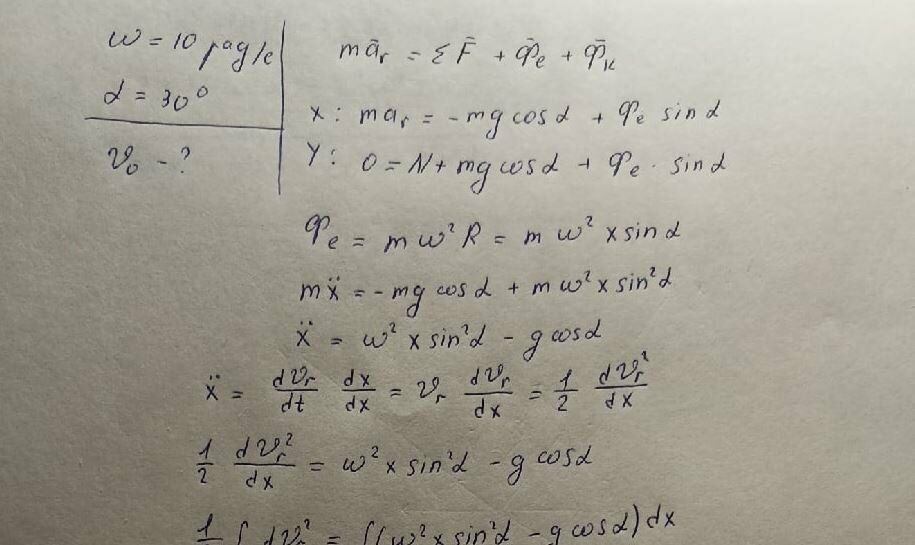 ω = 10 рад/с
α = 30°
v₀ - ?
mā_r = ΣF̄ + Φ̄_e + Φ̄_k
x: ma_r = -mg cosα + Φ_e sinα
Y: 0 = N + mg cosα + Φ_e · sinα
Φ_e = mω²R = mω² x sinα
mẍ = -mg cosα + mω² x sin²α
ẍ = ω² x sin²α - g cosα
ẍ = dv_r/dt dx/dx = v_r dv_r/dx = 1/2 dv_r²/dx
1/2 dv_r²/dx = ω² x sin²α - g cosα
1/2 ∫ dv_r² = ∫(ω² x sin²α - g cosα) dx